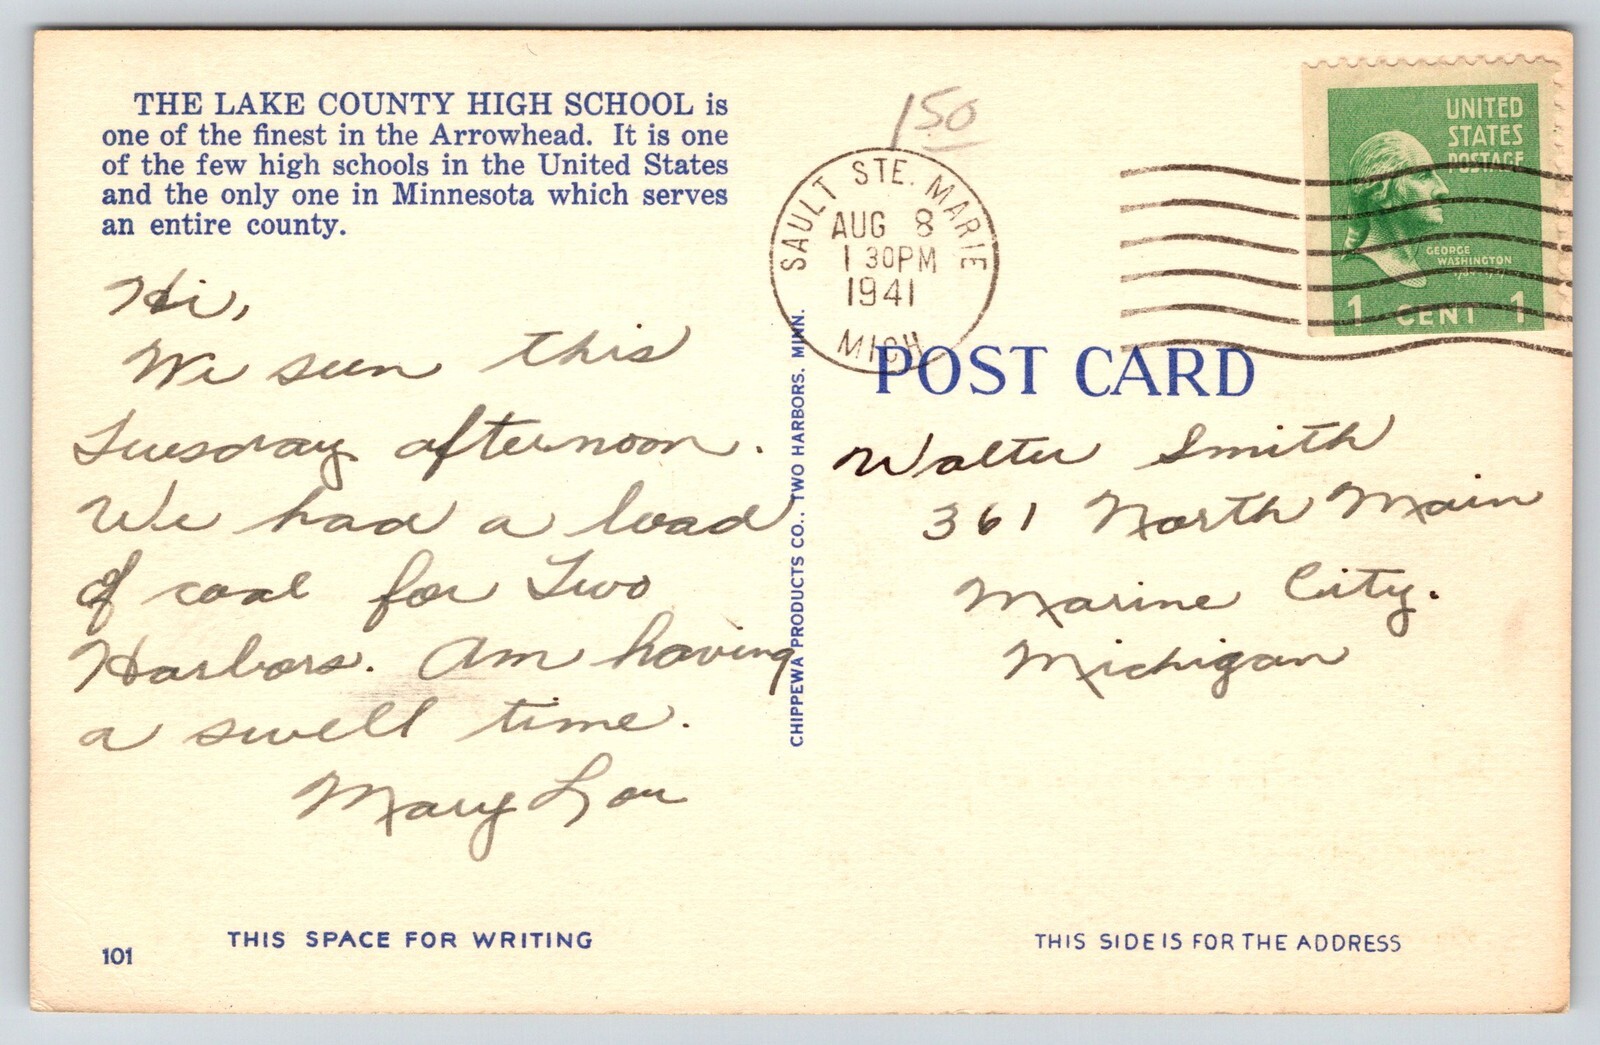 THE LAKE COUNTY HIGH SCHOOL is
one of the finest in the Arrowhead. It is one
of the few high schools in the United States
and the only one in Minnesota which serves
an entire county.
Hi,
We seen this
Tuesday afternoon.
We had a load
of coal for Two
Harbors. Am having
a swell time.
Mary Lou
THIS SPACE FOR WRITING
101
CHIPPEWA PRODUCTS CO., TWO HARBORS, MINN.
150
SAULT STE. MARIE
AUG 8
1 30PM
1941
MICH
UNITED
STATES
POSTAGE
GEORGE
WASHINGTON
1 CENT 1
POST CARD
Walter Smith
361 North Main
Marine City.
Michigan
THIS SIDE IS FOR THE ADDRESS